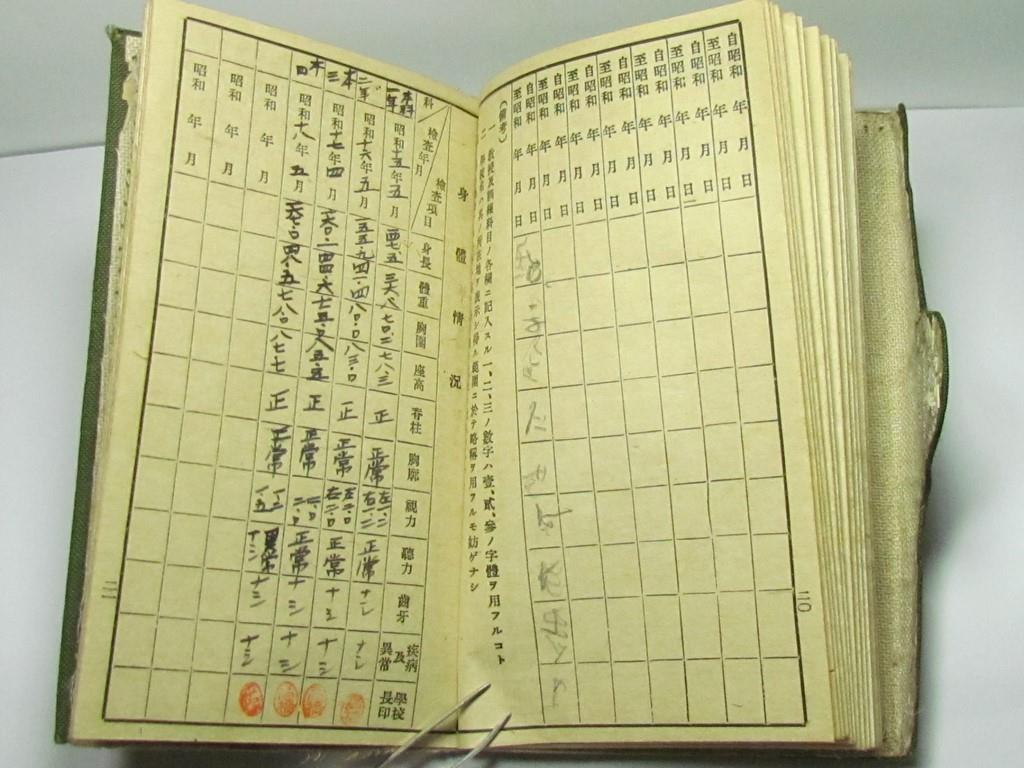 自昭和 年 月 日
至昭和 年 月 日
自昭和 年 月 日
至昭和 年 月 日
自昭和 年 月 日
至昭和 年 月 日
自昭和 年 月 日
至昭和 年 月 日
自昭和 年 月 日
至昭和 年 月 日
自昭和 年 月 日
至昭和 年 月 日
（備考）
一 教授及訓練科目ノ各欄ニ記入スル一、二、三ノ數字ハ壹、貳、參ノ字體ヲ用フルコト
二 學校名ハ其ノ所在地ヲ表示シ得ル範圍ニ於テ略稱ヲ用フルモ妨ゲナシ
二〇
身體情況
科 檢査年月 檢査項目 身長 體重 胸圍 座高 脊柱 胸廓 視力 聽力 齒牙 疾病及異常 學校長印
本科一年 昭和十五年五月 正 正常 左一.二 右一.二 正常 ナシ ナシ
二年 昭和十六年五月 一五五.九 四一.四 八〇.〇 八三.〇 正 正常 左二.〇 右二.〇 正常 ナシ ナシ
本三 昭和十七年四月 一六〇.一 四六.六 七五.八 八五.五 正 正常 二.〇 二.〇 正常 ナシ ナシ
本四 昭和十八年五月 五 七八.〇 八七.七 正 正常 一.二 一.五 ナシ ナシ ナシ
昭和 年 月
昭和 年 月
昭和 年 月
二一